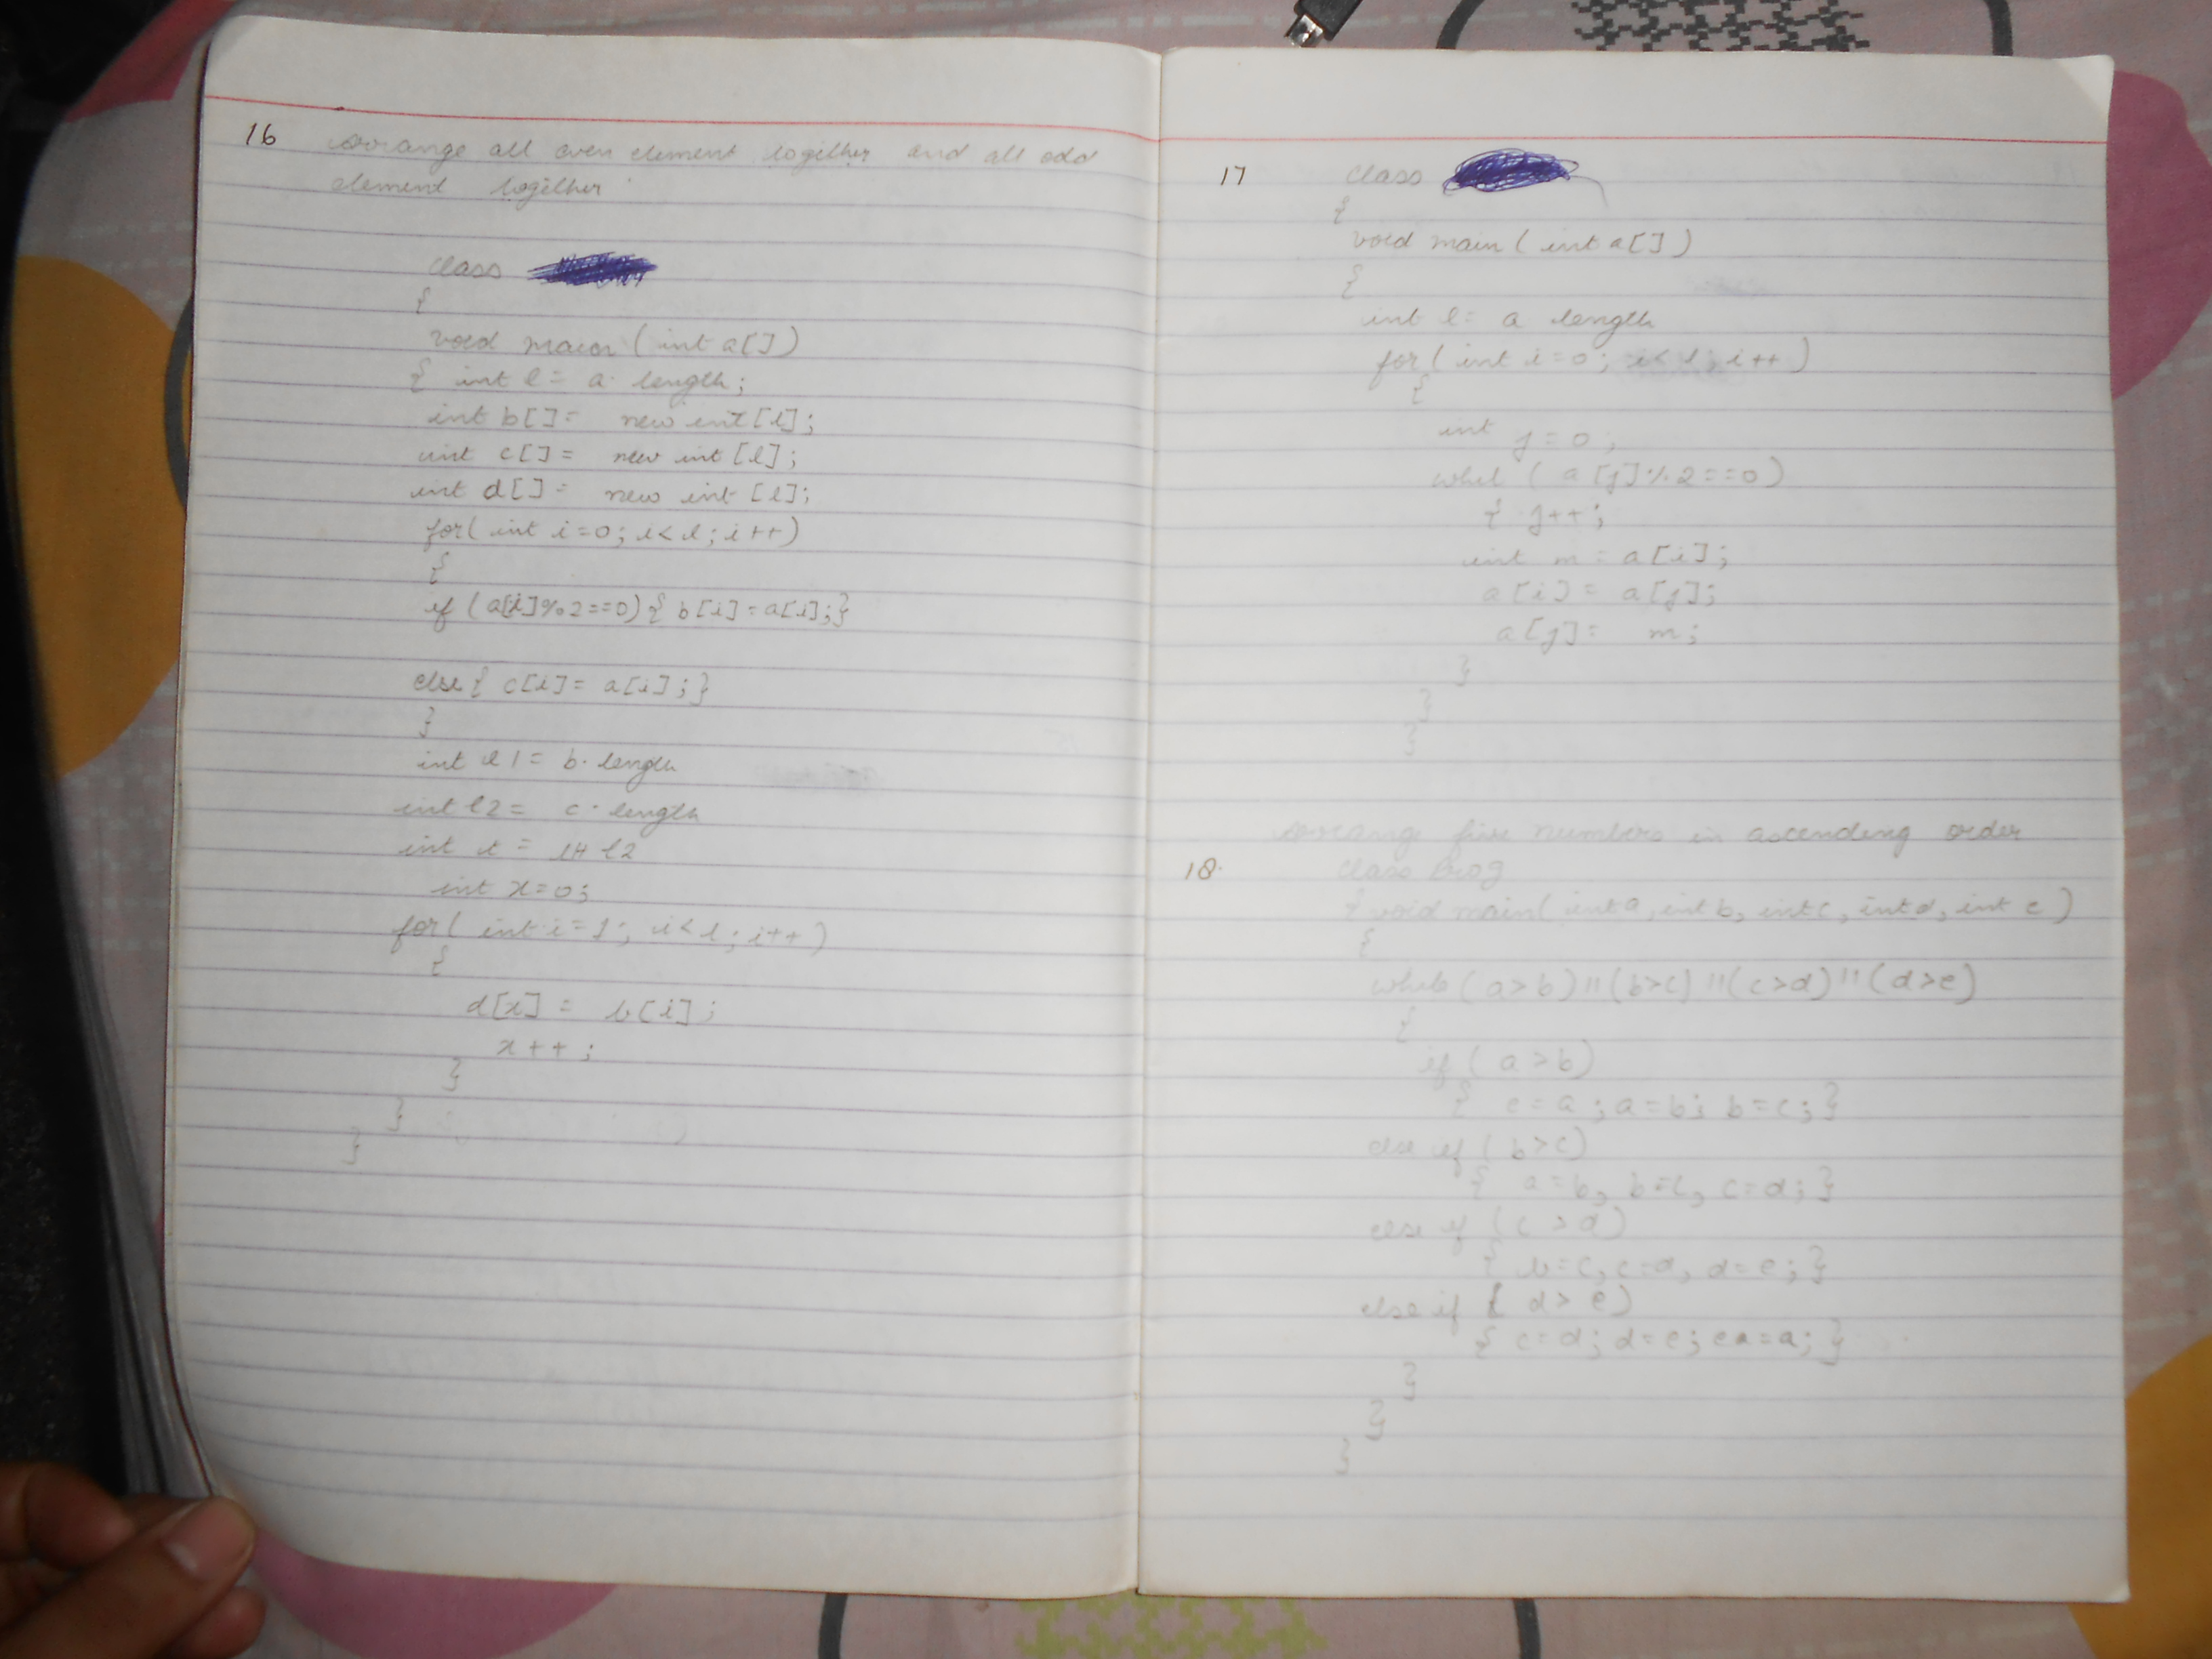 16 Arrange all even element together and all odd
element together
class
{
void main (int a[])
{ int l = a. length;
int b[] = new int [l];
int c[] = new int [l];
int d[] = new int [l];
for( int i=0; i< l; i++)
{
if (a[i]%2==0){ b[i]=a[i];}
else{ c[i]= a[i];}
}
int l1= b. length
int l2= c. length
int x=0;
for( int i=1; i<l; i++)
{
d[x] = b[i];
x++;
}
}
}
17 class
{
void main ( int a[])
{
int l= a length
for( int i=0; i<l; i++)
{
int j=0;
whel ( a[j]%2==0)
{ j++;
int m = a[i];
a[i]= a[j];
a[j]= m;
}
}
}
Arrange five numbers in ascending order
18. class Prog
{ void main( int a, int b, int c, int d, int e)
{
while (a>b)"(b>c)"(c>d)"(d>e)
{
if ( a>b)
{ e=a; a=b; b=c;}
else if ( b>c)
{ a=b, b=c, c=d;}
else if (c>d)
{ b=c, c=d, d=e;}
else if ( d>e)
{ c=d; d=e; e=a;}
}
}
}